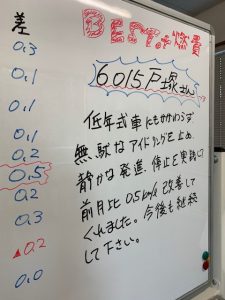 差
0.3
0.1
0.1
0.1
0.2
0.5
0.2
0.3
▲0.2
0.0
BEST.オブ燃費
6015戸塚さん
低年式車にもかかわらず
無駄なアイドリングを止め、
静かな発進、停止を実践して
前月比0.5km/ℓ改善して
くれました。今後も継続
して下さい。